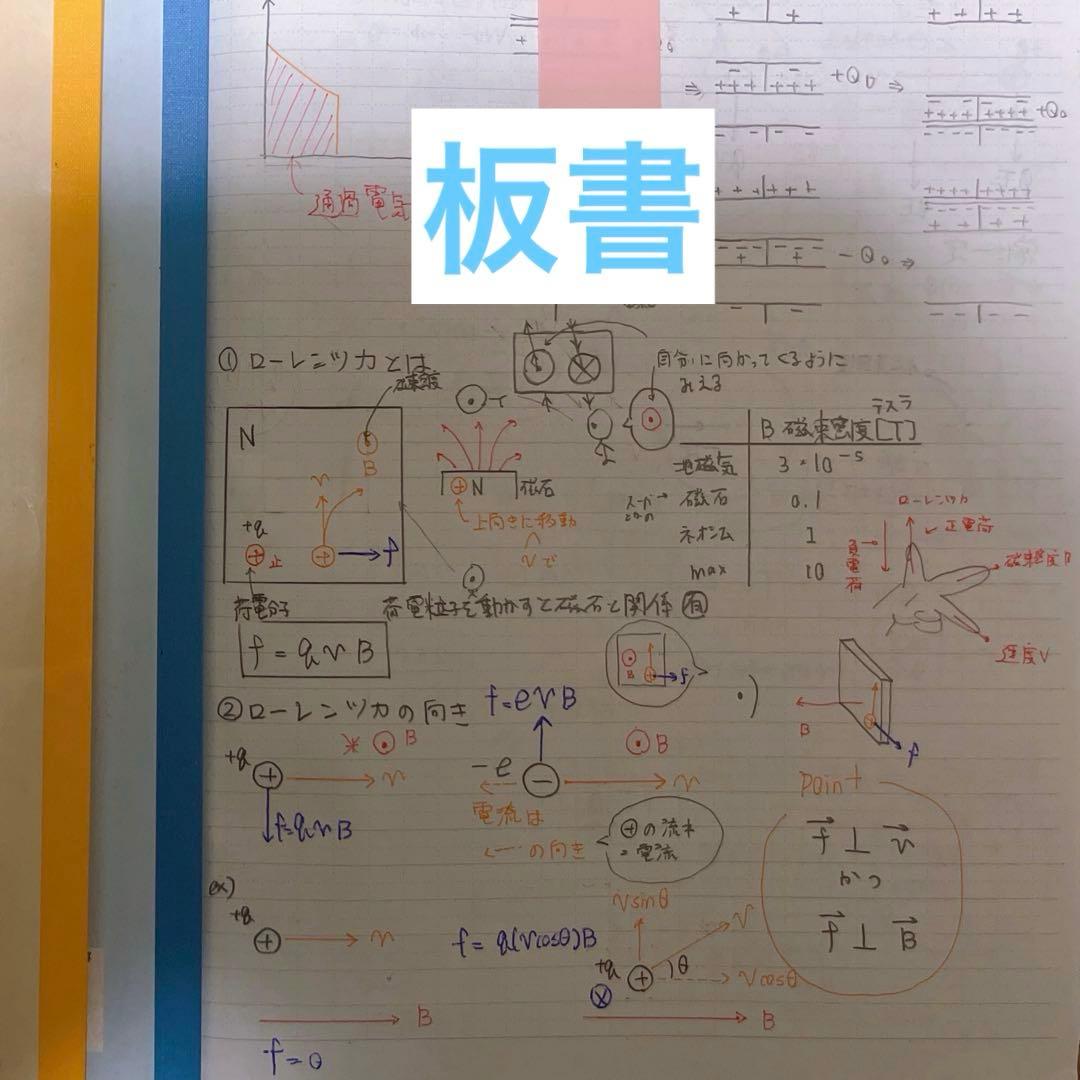 板書
+Q₀ ⇒
+Q₀
通過電気
-Q₀ ⇒
① ローレンツカとは
磁束密度
自分に向かってくるように
みえる
N
B
v
+q
止
f
荷電分子
N 磁石
上向きに移動
vで
荷電粒子を動かすと磁石と関係 有
f = qvB
テスラ
B 磁束密度[T]
地磁気 3・10⁻⁵
磁石 0.1
ネオジム 1
max 10
ローレンツカ
正電荷
負電荷
磁束密度B
速度V
② ローレンツカの向き
f=evB
B
f
+q
B
v
f=qvB
-e
B
v
電流は
←--- の向き
⊕の流れ
= 電流
B
f
point
f ⊥ v
かつ
f ⊥ B
ex)
+q
v
B
f=0
f= q(vcosθ)B
vsinθ
v
θ
+q
vcosθ
B